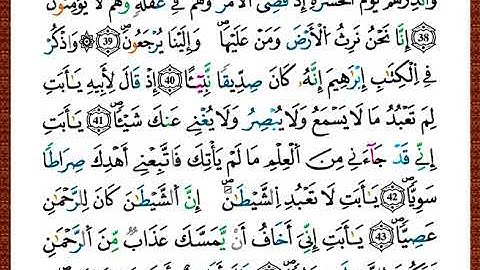 وَأَنذِرْهُمْ يَوْمَ الْحَسْرَةِ إِذْ قُضِيَ الْأَمْرُ وَهُمْ فِي غَفْلَةٍ وَهُمْ لَا يُؤْمِنُونَ
﴿38﴾ إِنَّا نَحْنُ نَرِثُ الْأَرْضَ وَمَنْ عَلَيْهَا وَإِلَيْنَا يُرْجَعُونَ ﴿39﴾ وَاذْكُرْ
فِي الْكِتَابِ إِبْرَاهِيمَ إِنَّهُ كَانَ صِدِّيقًا نَّبِيًّا ﴿40﴾ إِذْ قَالَ لِأَبِيهِ يَا أَبَتِ
لِمَ تَعْبُدُ مَا لَا يَسْمَعُ وَلَا يُبْصِرُ وَلَا يُغْنِي عَنكَ شَيْئًا ﴿41﴾ يَا أَبَتِ
إِنِّي قَدْ جَاءَنِي مِنَ الْعِلْمِ مَا لَمْ يَأْتِكَ فَاتَّبِعْنِي أَهْدِكَ صِرَاطًا
سَوِيًّا ﴿42﴾ يَا أَبَتِ لَا تَعْبُدِ الشَّيْطَانَ إِنَّ الشَّيْطَانَ كَانَ لِلرَّحْمَٰنِ
عَصِيًّا ﴿43﴾ يَا أَبَتِ إِنِّي أَخَافُ أَن يَمَسَّكَ عَذَابٌ مِّنَ الرَّحْمَٰنِ